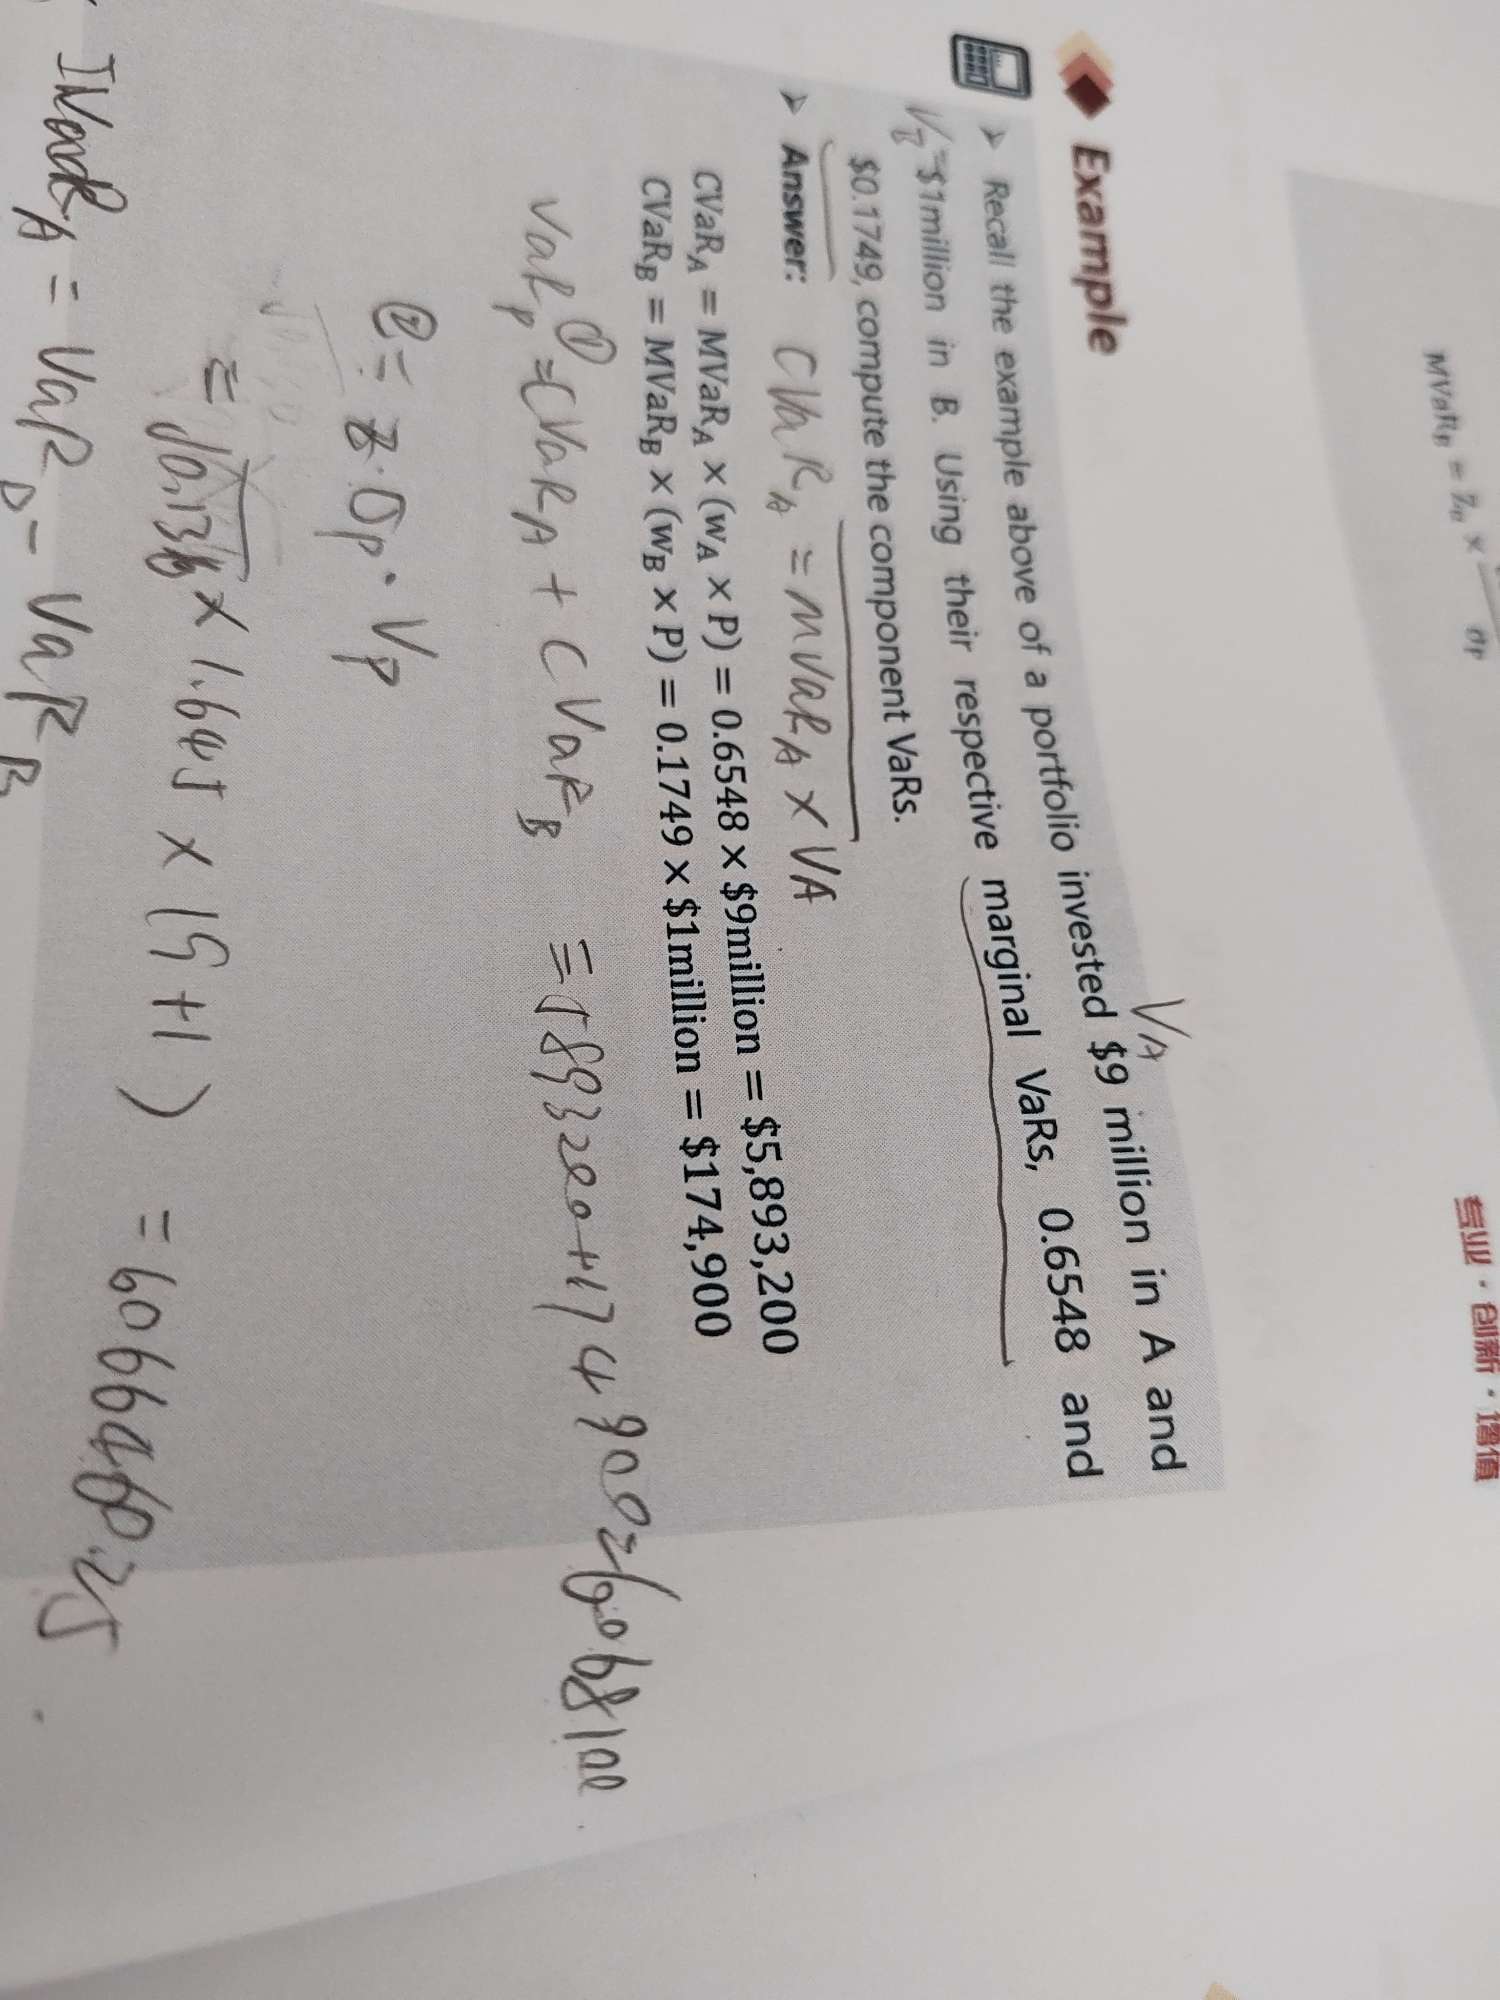 专业·创新·增值
Example
VA
➢ Recall the example above of a portfolio invested $9 million in A and
VB = $1million in B. Using their respective marginal VaRs, 0.6548 and
$0.1749, compute the component VaRs.
➢ Answer: CVaRA = MVaRA × VA
CVaRA = MVaRA × (wA × P) = 0.6548 × $9million = $5,893,200
CVaRB = MVaRB × (wB × P) = 0.1749 × $1million = $174,900
VaRp ①= CVaRA + CVaRB = 5893200+174900=6068100
②= z·σp·Vp
× 1.645 × (9+1) = 6066460.25
= VaR - VaRB